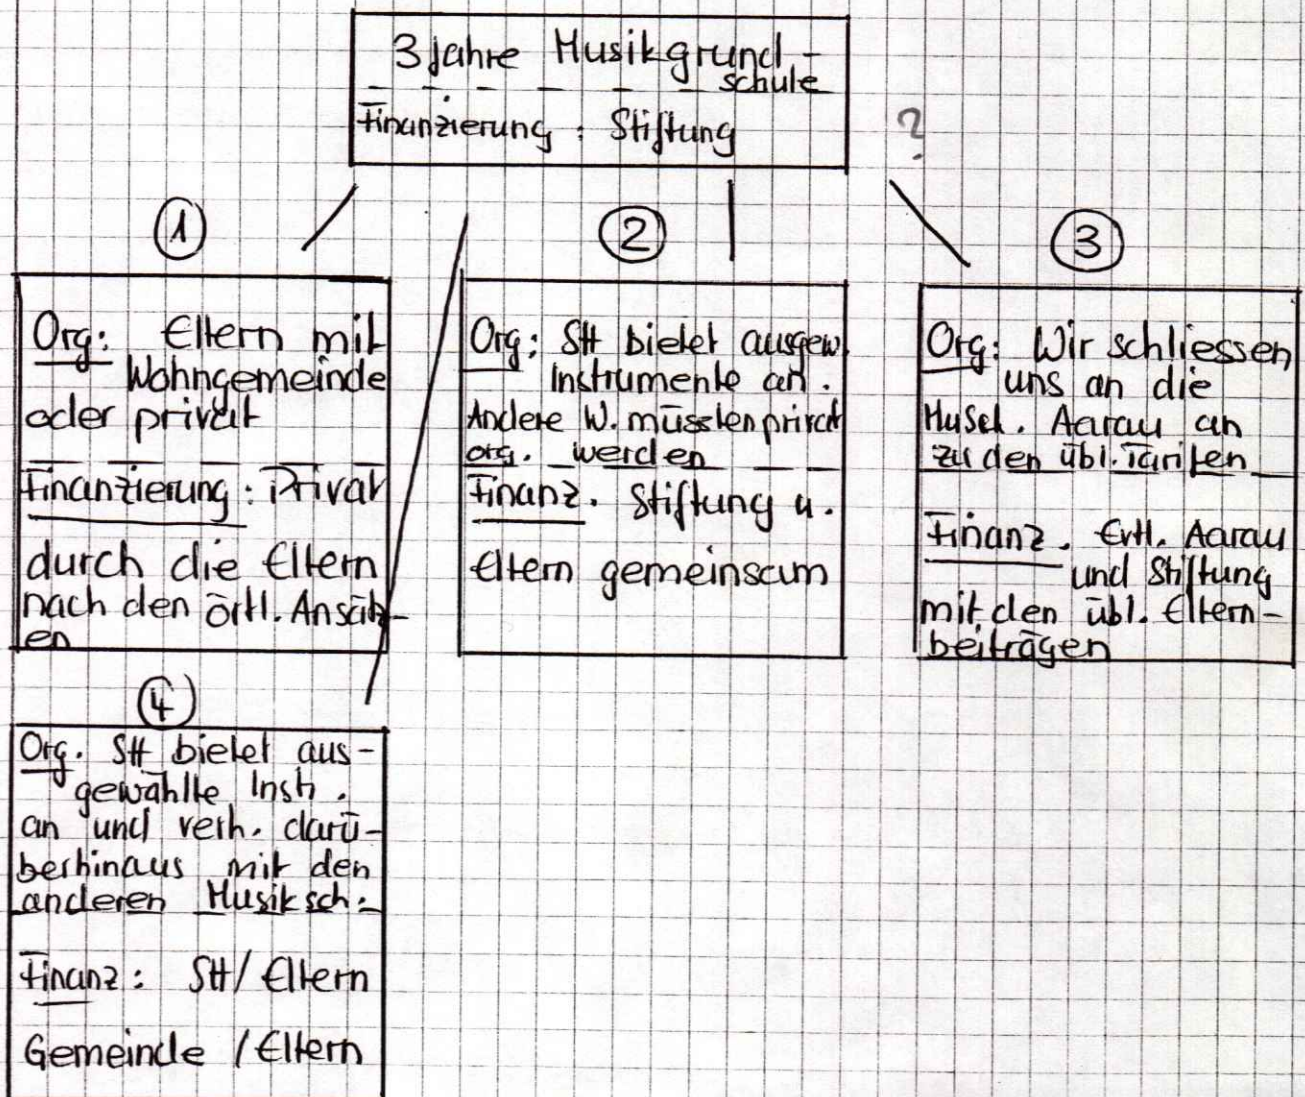 3 Jahre Musikgrund-
schule
Finanzierung: Stiftung
?
1
Org: Eltern mit
Wohngemeinde
oder privat
Finanzierung: Privat
durch die Eltern
nach den örtl. Ansätz-
en
2
Org: SH bietet ausgew.
Instrumente an.
Andere W. müssten privat
org. werden
Finanz. Stiftung u.
Eltern gemeinsam
3
Org: Wir schliessen
uns an die
MuSch. Aarau an
zu den übl. Tarifen
Finanz. Evtl. Aarau
und Stiftung
mit den übl. Eltern-
beiträgen
4
Org. SH bietet aus-
gewählte Instr.
an und verh. darü-
berhinaus mit den
anderen Musiksch.
Finanz: SH/Eltern
Gemeinde/Eltern